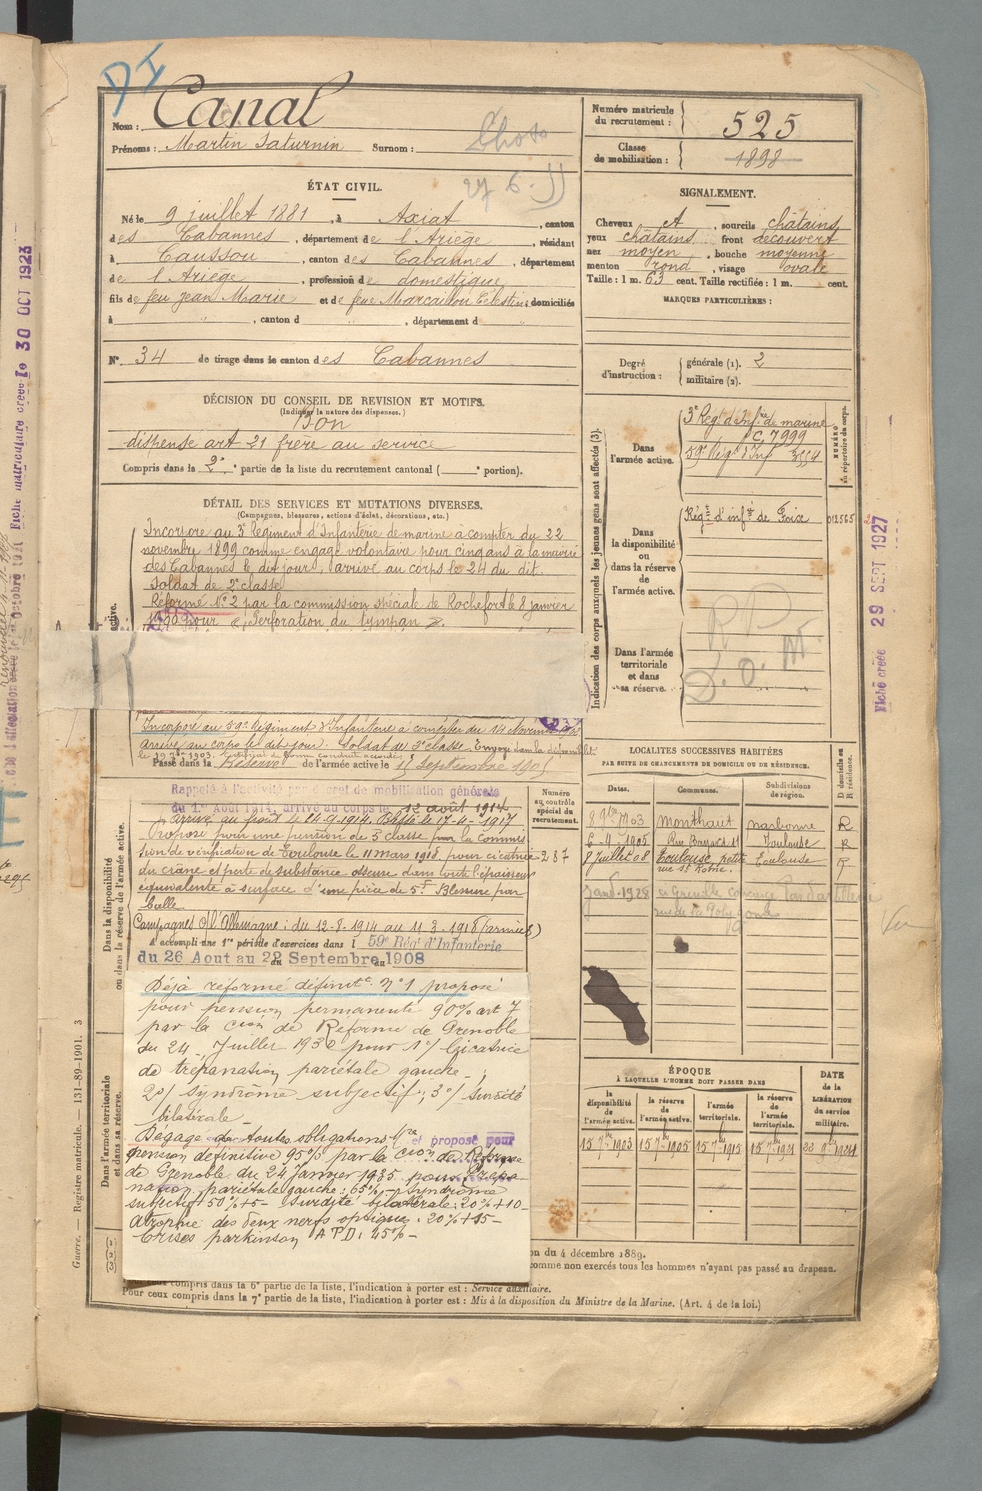 Canal
Nom :
Prénoms : Martin Saturnin Surnom :
Numéro matricule du recrutement : 525
Classe de mobilisation : 1898
ÉTAT CIVIL.
Né le 9 juillet 1881, à Axiat, canton
des Cabannes, département de l'Ariège, résidant
à Caussou, canton des Cabannes, département
de l'Ariège, profession de domestique
fils de feu Jean Marie et de feue Marcaillou Célestine domiciliés
à " , canton d " , département d "
N° 34 de tirage dans le canton des Cabannes
SIGNALEMENT.
Cheveux et , sourcils châtains
yeux châtains front découvert
nez moyen , bouche moyenne
menton rond , visage ovale
Taille : 1 m. 63 cent. Taille rectifiée : 1 m. cent.
MARQUES PARTICULIÈRES :
Degré d'instruction : générale (1). 2
militaire (2).
DÉCISION DU CONSEIL DE REVISION ET MOTIFS.
(Indiquer la nature des dispenses.)
Bon
dispense art 21 frère au service
Compris dans la 2e partie de la liste du recrutement cantonal ( portion).
DÉTAIL DES SERVICES ET MUTATIONS DIVERSES.
(Campagnes, blessures, actions d'éclat, décorations, etc.)
Incorporé au 3e Régiment d'Infanterie de marine à compter du 22
novembre 1899 comme engagé volontaire pour cinq ans à la mairie
des Cabannes le dit jour, arrivé au corps le 24 du dit.
Soldat de 2e classe
Réformé N° 2 par la commission spéciale de Rochefort le 8 janvier
1900 pour « Perforation du tympan ».
Incorporé au 59e Régiment d'Infanterie à compter du 14 Novembre
arrivé au corps le dit jour. Soldat de 2e classe. Envoyé dans la disponibilité
Passé dans la Réserve de l'armée active le 15 Septembre 1905
Rappelé à l'activité par décret de mobilisation générale
du 1er Aout 1914, arrivé au corps le 12 août 1914
Arrivé au front le 14-9-1914. Blessé le 17-4-1917
Proposé pour une pension de 3 classe par la commis
sion de vérification de Toulouse le 11 mars 1918 pour cicatrice
du crâne et perte de substance osseuse dans toute l'épaisseur
équivalente à surface d'une pièce de 5F. Blessure par
balle
Campagnes c/ l'Allemagne : du 12-8-1914 au 11-3-1918 (armées)
A accompli une 1re période d'exercices dans l 59e Rég' d'Infanterie
du 26 Aout au 22 Septembre 1908
Déjà réformé définitt N° 1 proposé
pour pension permanente 90% art 7
par la Cion de Réforme de Grenoble
du 24 Juillet 1930 pour 1°/ Cicatrice
de trépanation pariétale gauche ;
2°/ Syndrôme subjectif ; 3°/ Surdité
bilatérale
Dégagé de toutes obligations et proposé pour
pension définitive 95% par la Cion de Réforme
de Grenoble du 24 Janvier 1935 pour Trépa-
nation pariétale gauche : 65% - Syndrôme
subjectif + 50% + 5 - Surdité bilatérale : 20% + 10 -
Atrophie des deux nerfs optiques : 20% + 15 -
Crises parkinson
Numéro au contrôle spécial du recrutement.
287
Indication des corps auxquels les jeunes gens sont affectés (3).
NUMÉRO au répertoire du corps.
Dans l'armée active.
3e Rég d'Infie de marine
C. 7999
59e Rég d'Inf
Dans la disponibilité ou dans la réserve de l'armée active.
Régt d'infie de Foix 012565
Dans l'armée territoriale et dans sa réserve.
LOCALITÉS SUCCESSIVES HABITÉES
PAR SUITE DE CHANGEMENTS DE DOMICILE OU DE RÉSIDENCE.
Dates. Communes. Subdivisions de région. D domicile ou R résidence.
8 9bre 1903 Monthaut Narbonne R
6-4-1905 Rue Bayard Toulouse R
8 Juillet 08 Toulouse, petite rue St Rome. Toulouse R
1928 Grenoble
ÉPOQUE
À LAQUELLE L'HOMME DOIT PASSER DANS
la disponibilité de l'armée active. la réserve de l'armée active. l'armée territoriale. la réserve de l'armée territoriale. DATE de la LIBÉRATION du service militaire.
15 7bre 1903 15 7bre 1905 15 7bre 1915 15 7bre 1921
on du 4 décembre 1889.
comme non exercés tous les hommes n'ayant pas passé au drapeau.
compris dans la 6e partie de la liste, l'indication à porter est : Service auxiliaire.
Pour ceux compris dans la 7e partie de la liste, l'indication à porter est : Mis à la disposition du Ministre de la Marine. (Art. 4 de la loi.)
Guerre. — Registre matricule. — 131-89-1901. 3
Dans la disponibilité ou dans la réserve de l'armée active.
Dans l'armée territoriale et dans sa réserve.
Fiche matriculaire créée le 30 OCT 1923
Fiche créée 29 SEPT 1927